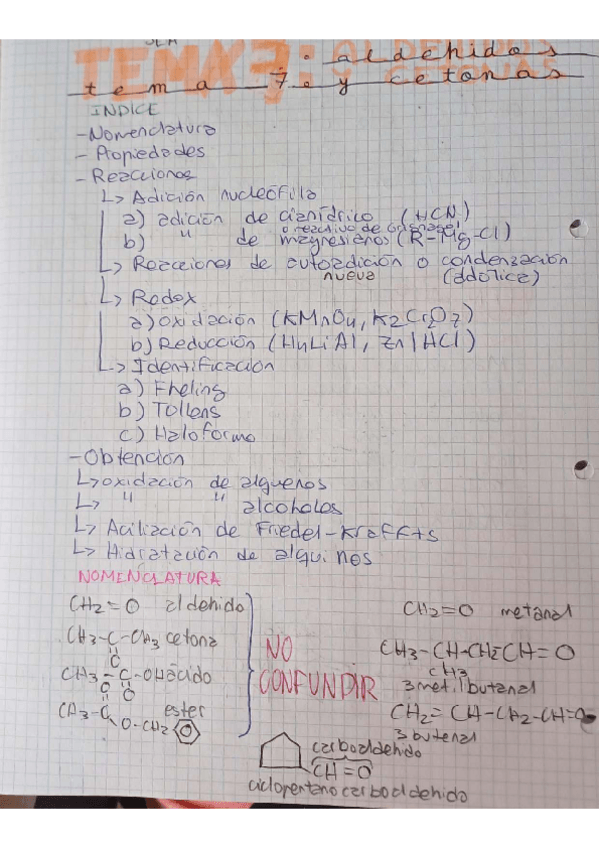 TEMA 7: ALDEHIDOS
tema 7: aldehidos y cetonas
INDICE
-Nomenclatura
- Propiedades
- Reacciones
↳ Adición nucleófila
a) adición de cianídrico (HCN)
o reactivo de Grignard
b) " de magnesianos (R-Mg-Cl)
↳ Reacciones de autoadición o condensación
nueva (aldólica)
↳ Redox
a) oxidación (KMnO4, K2Cr2O7)
b) Reducción (H4LiAl, Zn|HCl)
↳ Identificación
a) Fheling
b) Tollens
c) Haloformo
-Obtención
↳ oxidación de alquenos
↳ " " alcoholes
↳ Acilización de Friedel-Kraffts
↳ Hidratación de alquinos
NOMENCLATURA
CH2=O aldehido
CH3-C-CH3 cetona
O
CH3-C-OH ácido
O
CH3-C ester
O
O-CH2
NO
CONFUNDIR
CH2=O metanal
CH3-CH-CH2CH=O
CH3
3 metilbutanal
CH2=CH-CH2-CH=O
3 butenal
carboaldehido
CH=O
ciclopentanocarboaldehido